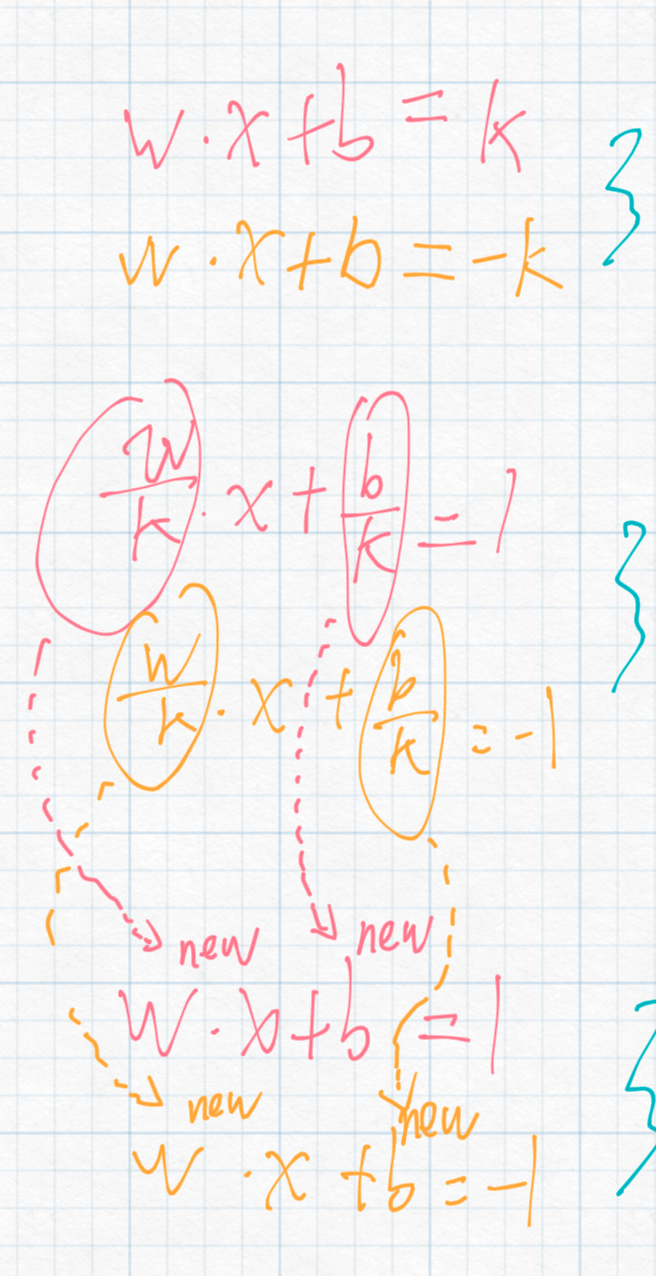 w · x + b = k
w · x + b = -k
w/k · x + b/k = 1
w/k · x + b/k = -1
new new
w · x + b = 1
new new
w · x + b = -1